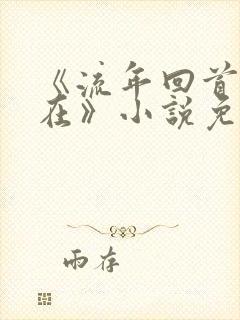 《流年回首
在》小説免
雨存